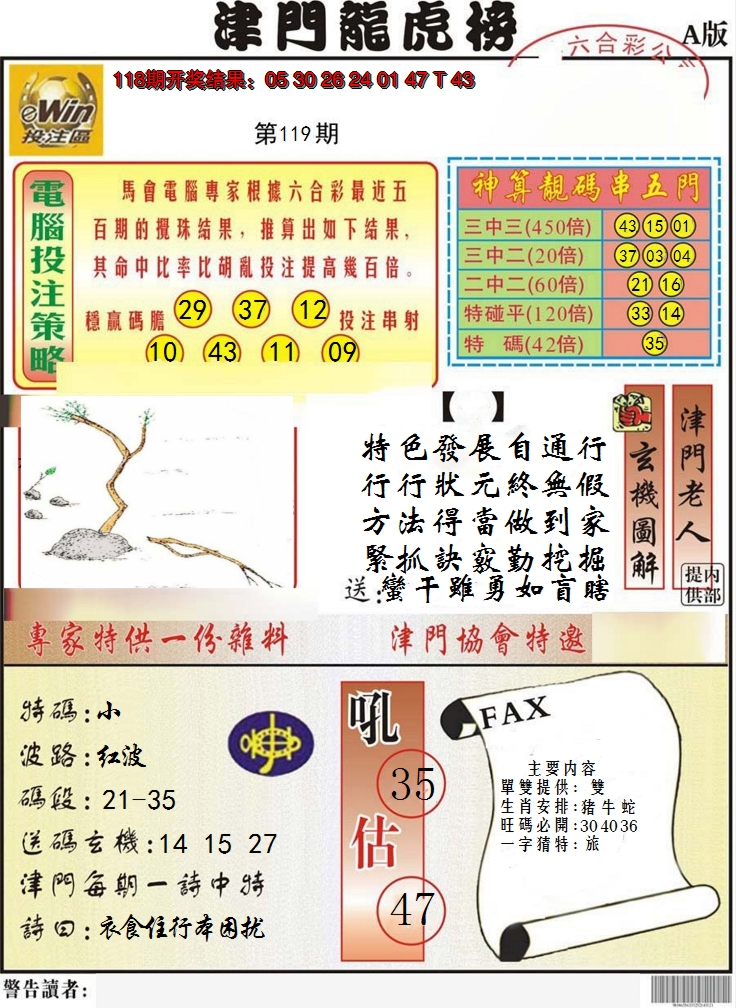 津門龍虎榜
A版
六合彩公
118期开奖结果：05 30 26 24 01 47 T 43
eWin
投注區
第119期
電腦投注策略
馬會電腦專家根據六合彩最近五
百期的攪珠结果，推算出如下结果，
其命中比率比胡亂投注提高幾百倍。
穩贏碼膽 29 37 12 投注串射
10 43 11 09
神算靚碼串五門
三中三(450倍) 43 15 01
三中二(20倍) 37 03 04
二中二(60倍) 21 16
特碰平(120倍) 33 14
特 碼(42倍) 35
【 】
特色發展自通行
行行狀元終無假
方法得當做到家
緊抓訣竅勤挖掘
送:蠻干雖勇如盲瞎
玄機圖解
津門老人
内部提供
專家特供一份雜料
津門協會特邀
特碼:小
波路:红波
碼段:21-35
送碼玄機:14 15 27
津門每期一詩中特
詩曰:衣食住行本困扰
吼 35
估 47
FAX
主要内容
單雙提供: 雙
生肖安排:豬牛蛇
旺碼必開:30 40 36
一字猜特: 旅
警告讀者: